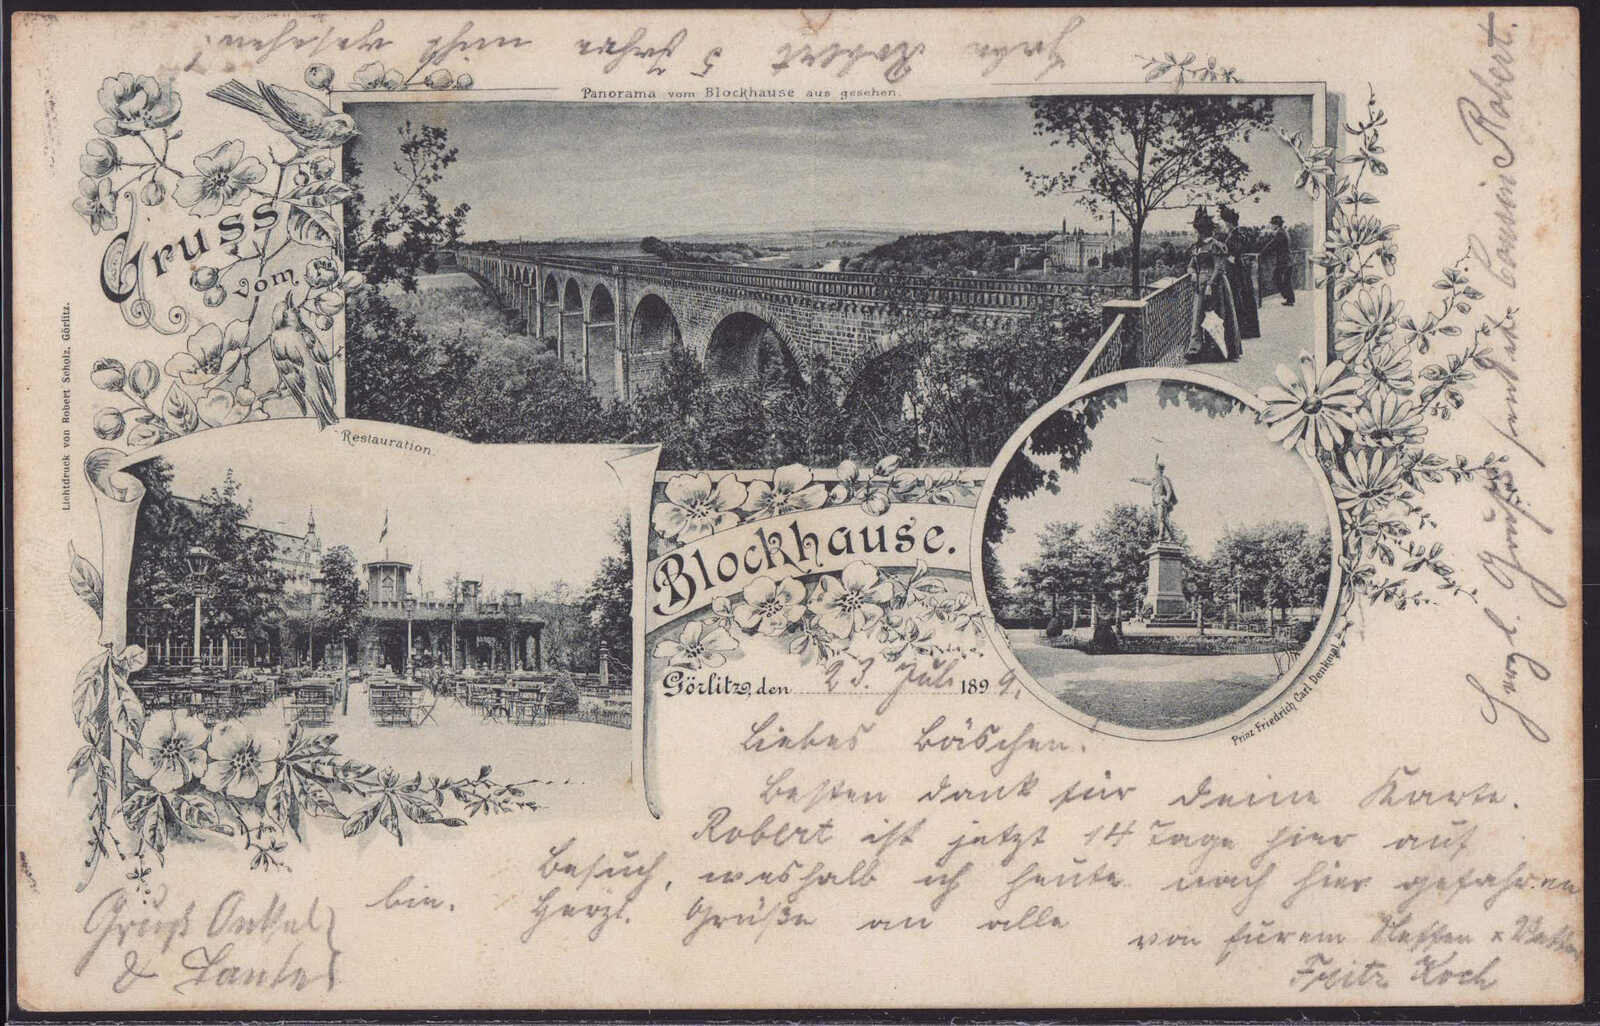 Haben Robert 5 Jahre nicht gesehen.
Panorama vom Blockhause aus gesehen.
Gruss
vom
Blockhause.
Restauration.
Lichtdruck von Robert Scholz, Görlitz.
Prinz Friedrich Carl Denkmal.
Görlitz, den 23. Juli 1899.
Liebes Bäschen!
Besten Dank für deine Karte.
Robert ist jetzt 14 Tage hier auf
Besuch, weshalb ich heute nach hier gefahren
bin. Herzl. Grüße an alle
von Eurem Neffen & Vetter
Fritz Koch
Gruß Onkel
& Tante
Herzl. Grüße sendet Cousin Robert.